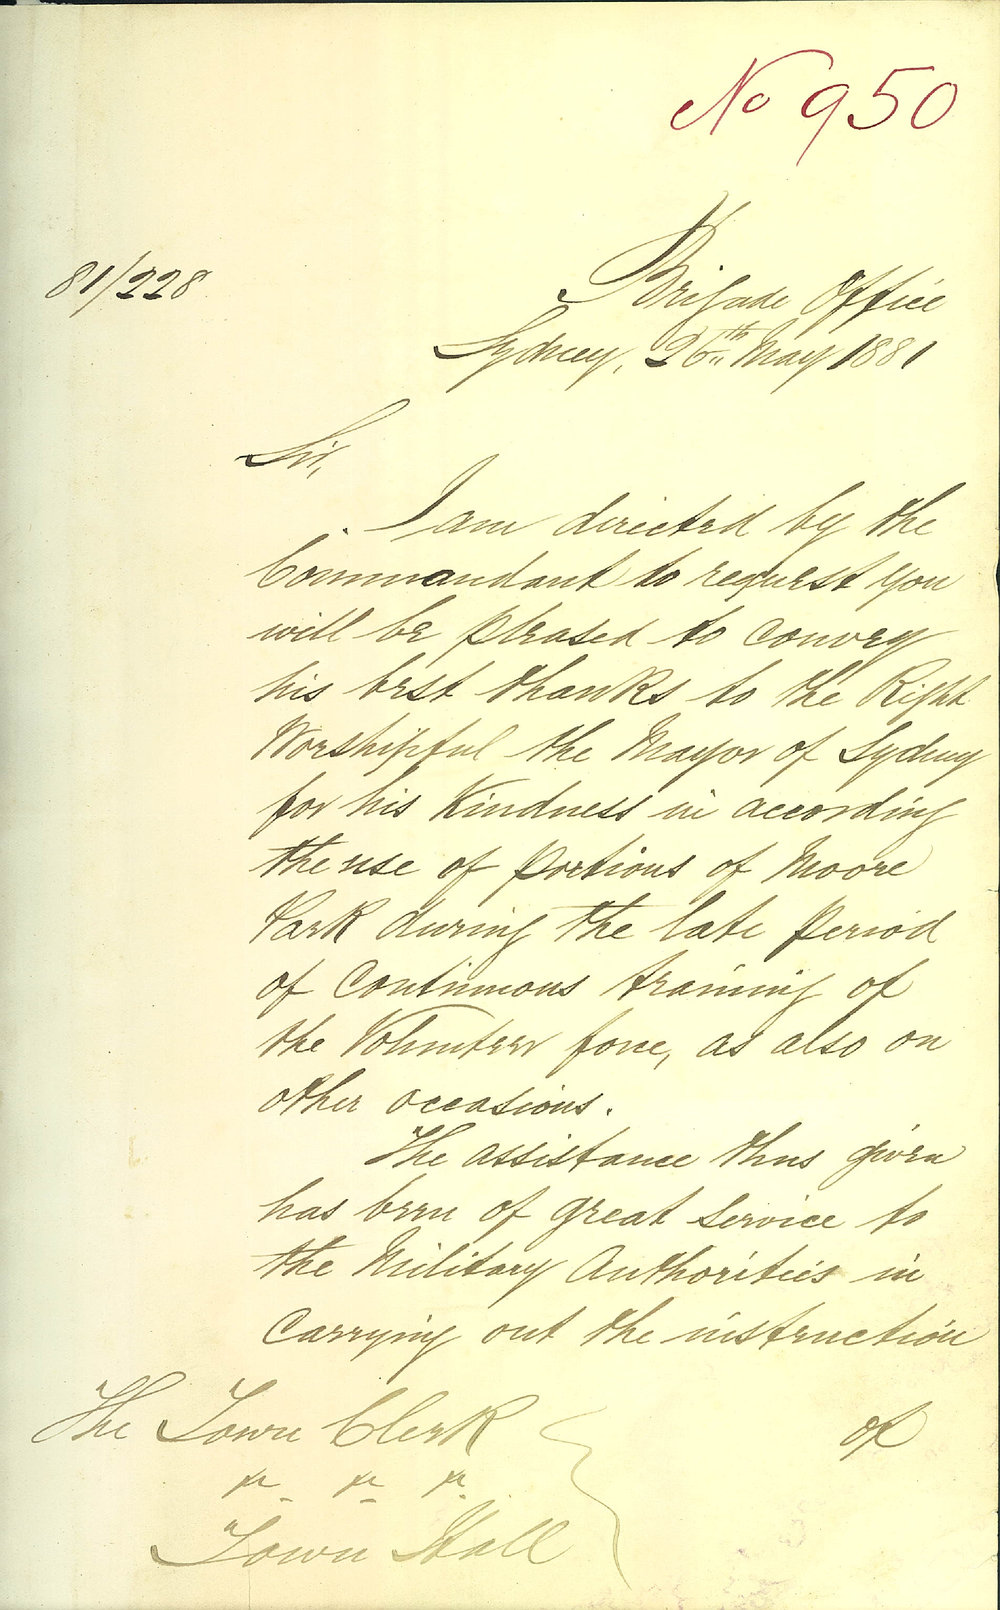 No 950
81/228
Brigade Office
Sydney, 26th May 1881
Sir,
I am directed by the
Commandant to request you
will be pleased to convey
his best thanks to the Right
Worshipful the Mayor of Sydney
for his kindness in according
the use of portions of Moore
Park during the late period
of Continuous training of
the Volunteer force, as also on
other occasions.
The assistance thus given
has been of great service to
the Military Authorities in
Carrying out the instruction
of
The Town Clerk
Town Hall